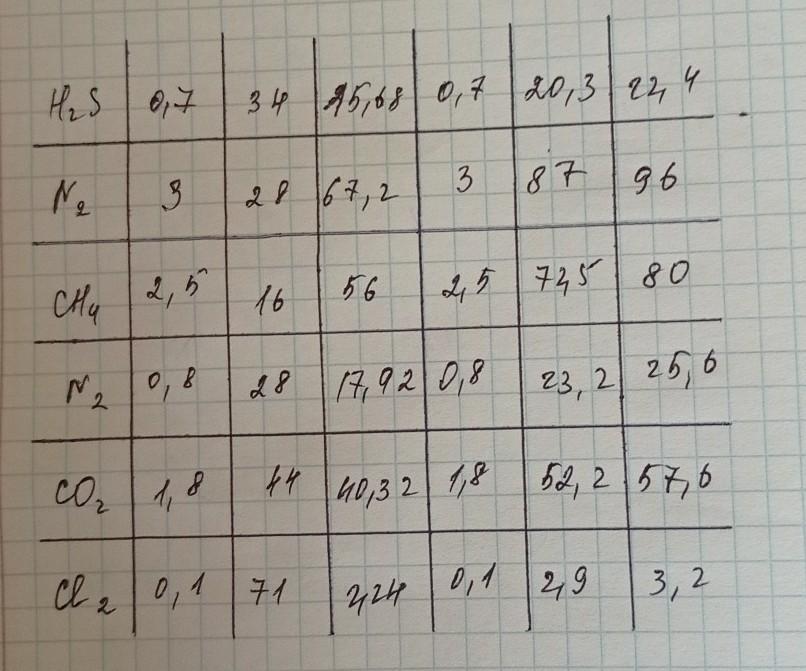 H₂S 0,7 34 15,68 0,7 20,3 22,4
N₂ 3 28 67,2 3 87 96
CH₄ 2,5 16 56 2,5 72,5 80
N₂ 0,8 28 17,92 0,8 23,2 25,6
CO₂ 1,8 44 40,32 1,8 52,2 57,6
Cl₂ 0,1 71 2,24 0,1 2,9 3,2